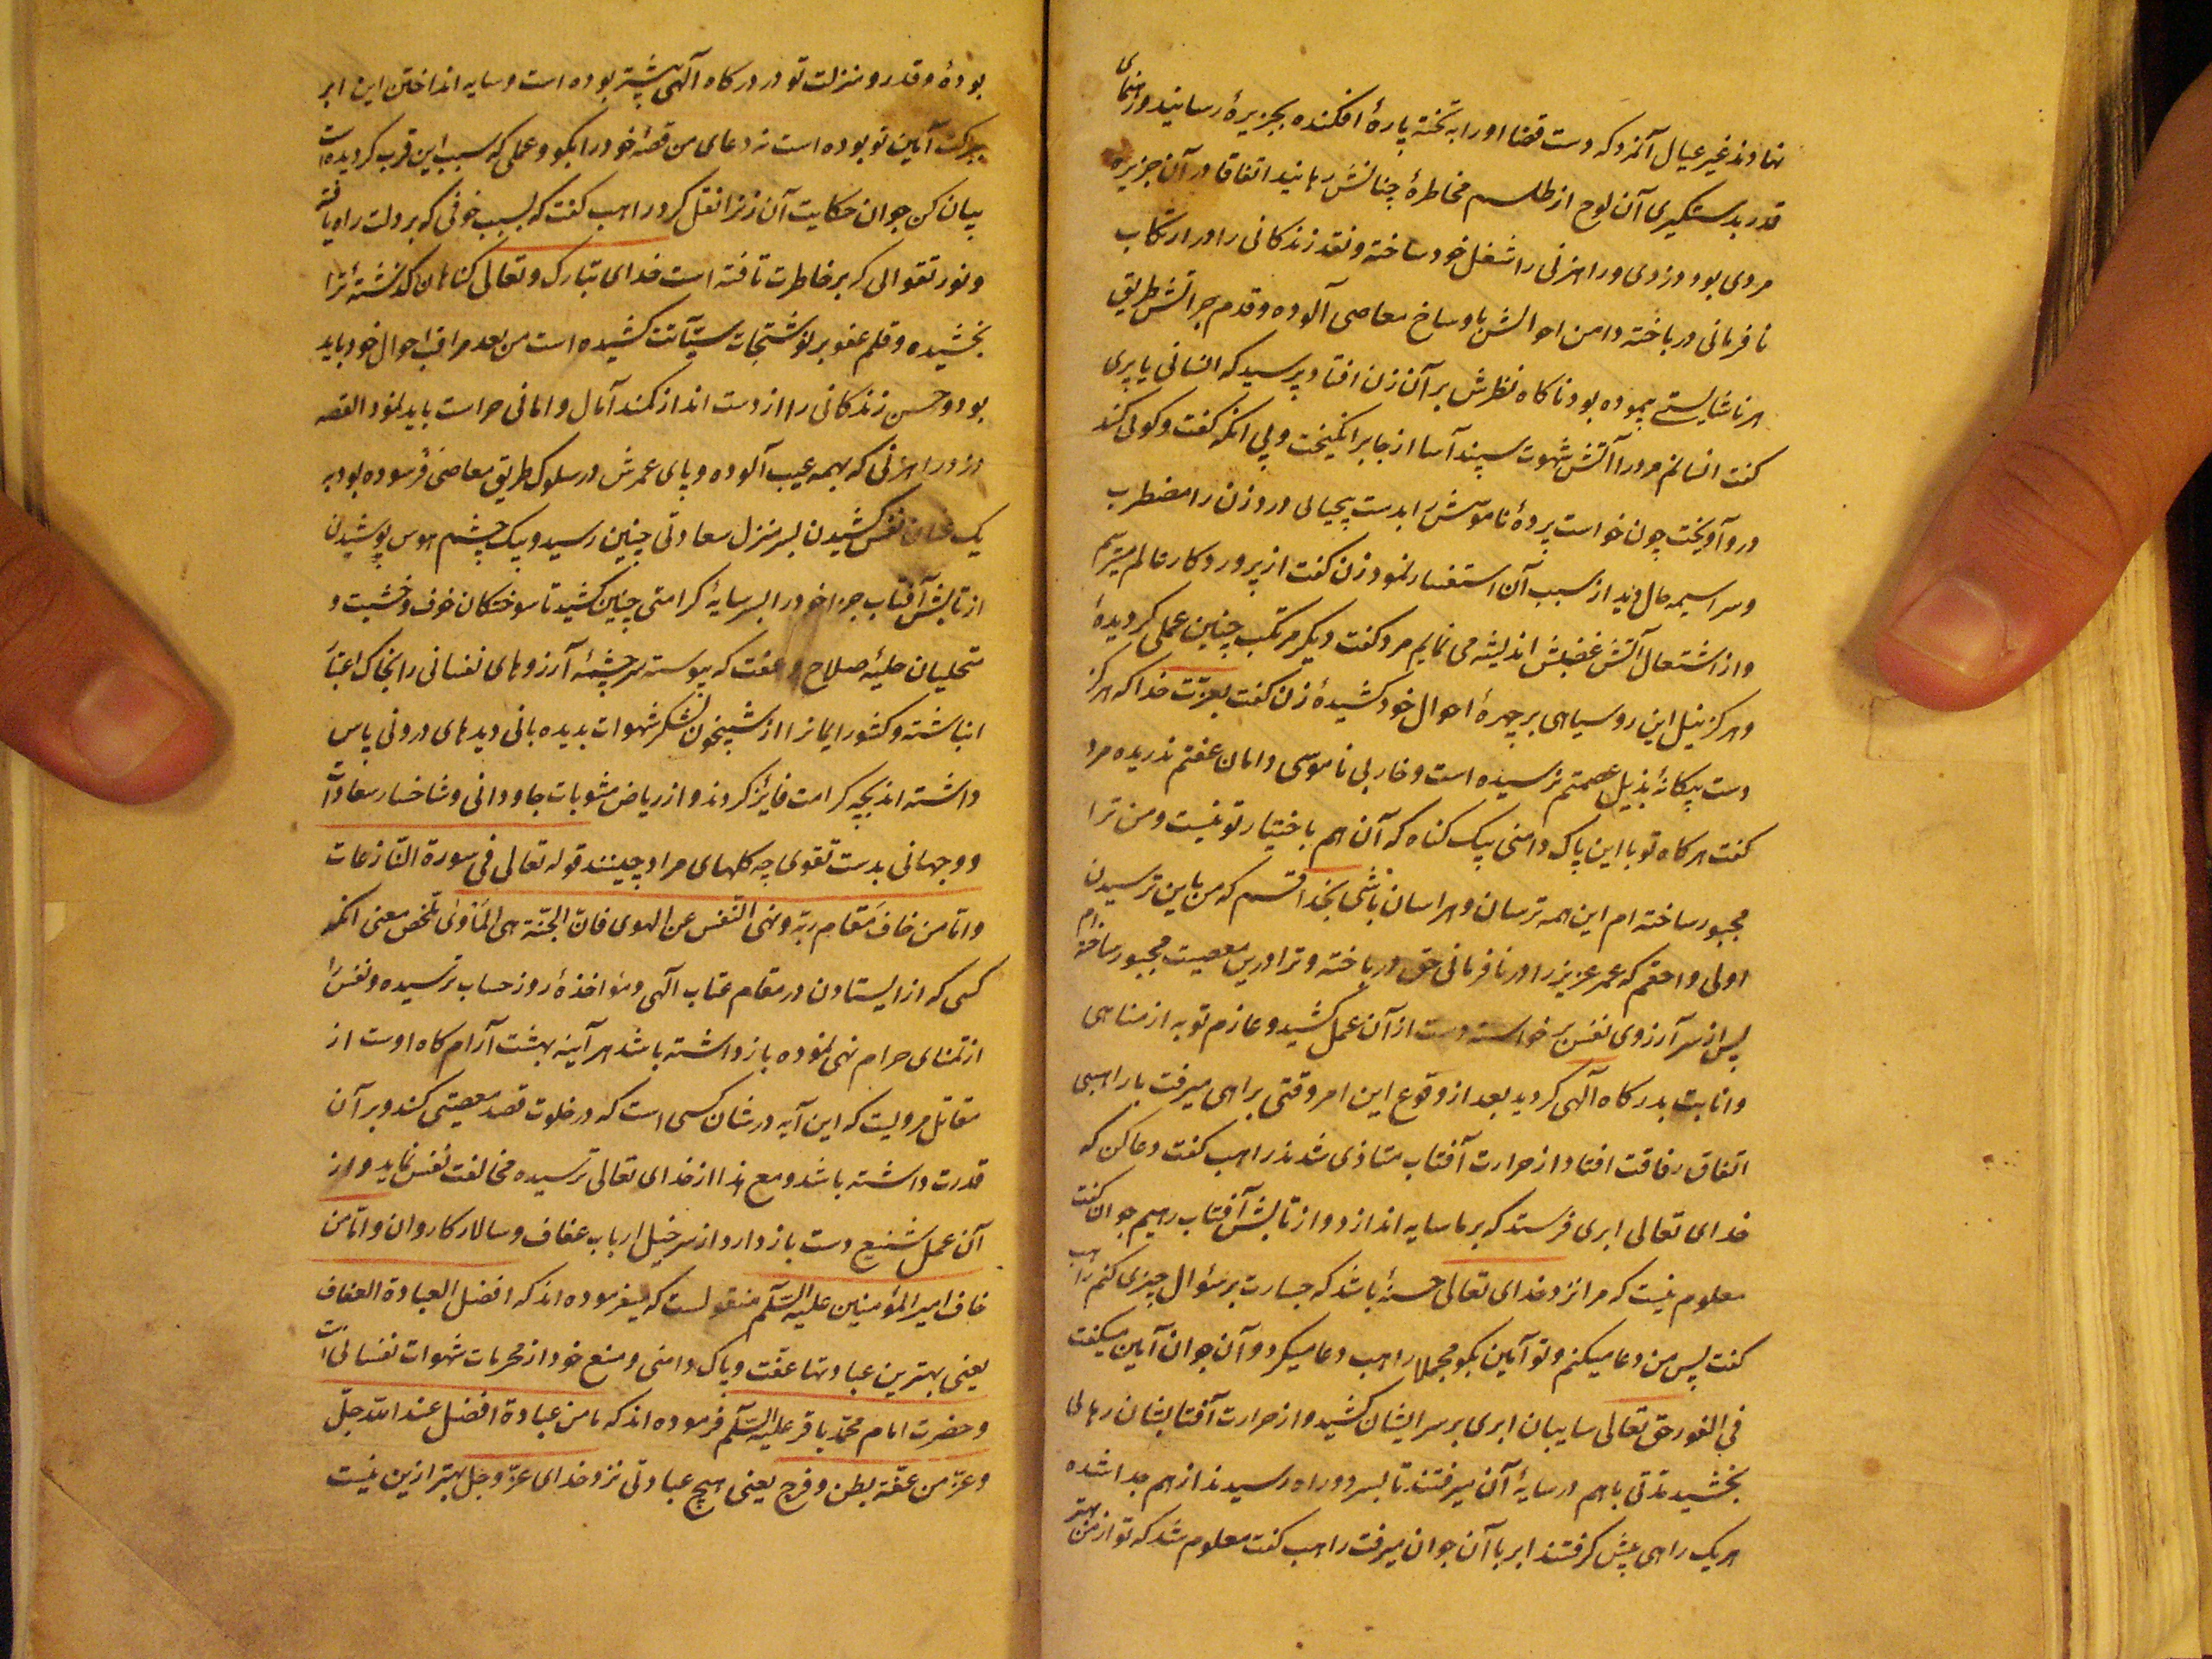 نهادند غیر عیال آنمرد که دست قضا او را به تخته پارهٔ افکنده بجزیرهٔ رسانید و رهنمای
قدر بدستگیری آن لوح از طلسم مخاطرهٔ چنانش رهانید اتفاقا در آن جزیره
مردی بود دزدی و راهزنی را شغل خود ساخته و نقد زندکانی را در ارتکاب
نافرمانی در باخته دامن احوالش باوساخ معاصی آلوده و قدم جراتش طریق
هر ناشایستے پیموده بود ناکاه نظرش بر آن زن افتاد پرسید که انسانی یا پری
کفت انسانم مرد را آتش شهوت سپند آسا از جا برانکیخت و پی انکه کفت و کوئی کند
در وآویخت چون خواست پردهٔ ناموسش را بدست بیحیائی درد زن را مضطرب
و سراسیمه حال دید از سبب آن استفسار نمود زن کفت از پروردکار عالم میترسم
و از اشتعال آتش غضبش اندیشه می نمایم مرد کفت دیکر مرتکب چنین عملی کردیدهٔ
و هرکز نیل این روسیاهی بر چهرهٔ احوال خود کشیدهٔ زن کفت بعزّت خدا که هرکز
دست بیکانهٔ بذیل عصمتم نرسیده است و خار بی ناموسی دامان عفتم ندریده مرد
کفت هرکاه تو با این پاک دامنی بیک کناه که آن هم باختیار تو نیست و من ترا
مجبور ساخته ام این همه ترسان و هراسان باشی بخدا قسم که من باین ترسیدن
اولی و احقم که عمر عزیز را در نافرمانی حق در باخته و ترا درین معصیت مجبور ساخته ام
پس از سر آرزوی نفس برخواسته دست از آن عمل کشید و عازم توبه از مناهی
و انابت بدرکاه آلهی کردید بعد از وقوع این امر وقتی براهی میرفت با راهبی
اتفاق رفاقت افتاد از حرارت آفتاب متاذی شدند راهب کفت دعا کن که
خدای تعالی ابری فرستد که بر ما سایه اندازد و از تابش آفتاب رهیم جوان کفت
معلوم نیست که مرا نزد خدای تعالی حسنهٔ باشد که جسارت بر سؤال چیزی کنم راهب
کفت پس من دعا میکنم و تو آمین بکو مجملا راهب دعا میکرد و آن جوان آمین میکفت
فی الفور حق تعالی سایبان ابری بر سر ایشان کشید و از حرارت آفتابشان رهائی
بخشید مدتی باهم در سایهٔ آن میرفتند تا بسر دو راه رسیدند از هم جدا شده
هریک راهی پیش کرفتند ابر با آن جوان میرفت راهب کفت معلوم شد که تو از من بهتر
بودهٔ و قدر و منزلت تو در درکاه آلهی بیشتر بوده است و سایه انداختن این ابر
ببرکت آمین تو بوده است نه دعای من قصهٔ خود را بکو و عملی که سبب این قرب کردیده است
بیان کن جوان حکایت آن زنرا نقل کرد راهب کفت که بسبب خوفی که بر دلت راه یافته
و نور تقوائی که بر خاطرت تافته است خدای تبارک و تعالی کناهان کذشتهٔ ترا
بخشیده و قلم عفو بر نوشتجات سیّآتت کشیده است من بعد مراقب احوال خود باید
بود و حسن زندکانی را از دست انداز کمند آمال و امانی حراست باید نمود القصه
دزد راهزنی که بهمه عیب آلوده و پای عمرش در سلوک طریق معاصی فرسوده بود به
یک نفس کشیدن بسر منزل سعادتی چنین رسید و بیک چشم هوس پوشیدن
از تابش آفتاب جزا خود را بسر سایهٔ کرامتی چنین کشید تا سوختکان خوف و خشیت و
متحلیان حلیهٔ صلاح و عفت که پیوسته سر چشمهٔ آرزوهای نفسانی را بخاک اعتبار
انباشته و کشور ایمانرا از شبیخون لشکر شهوات بدیده بانی دیدهای درونی پاس
داشته اند بچه کرامت فایز کردند و از ریاض مثوبات جاودانی و شاخسار سعادات
دوجهانی بدست تقوی چه کلهای مراد چینند قوله تعالی فی سورة النازعات
و امّا من خافَ مقام ربّه و نهی النّفس عن الهوی فانّ الجنّة هی المَأوٰی ملخص معنی انکه
کسی که از ایستادن در مقام عتاب آلهی و مؤاخذهٔ روز حساب ترسیده و نفس را
از تمنای حرام نهی نموده باز داشته باشد هر آینه بهشت آرام کاه اوست از
مقاتل مرویست که این آیه در شان کسی است که در خلوت قصد معصیتی کند و بر آن
قدرت داشته باشد و مع هذا از خدای تعالی ترسیده مخالفت نفس نماید و از
آن عمل شنیع دست باز دارد از سر خیل ارباب عفاف و سالار کاروان و امّا من
خاف امیر المؤمنین علیه السّلم منقولست که میفرموده اند که افضل العبادة العفاف
یعنی بهترین عبادتها عفّت و پاک دامنی و منع خود از محرمات شهوات نفسانی است
و حضرت امام محمّد باقر علیه السّلم فرموده اند که ما من عبادة افضل عند الله جلّ
و عزّ من عفّة بطن و فرج یعنی هیچ عبادتی نزد خدای عزّ و جل بهتر ازین نیست